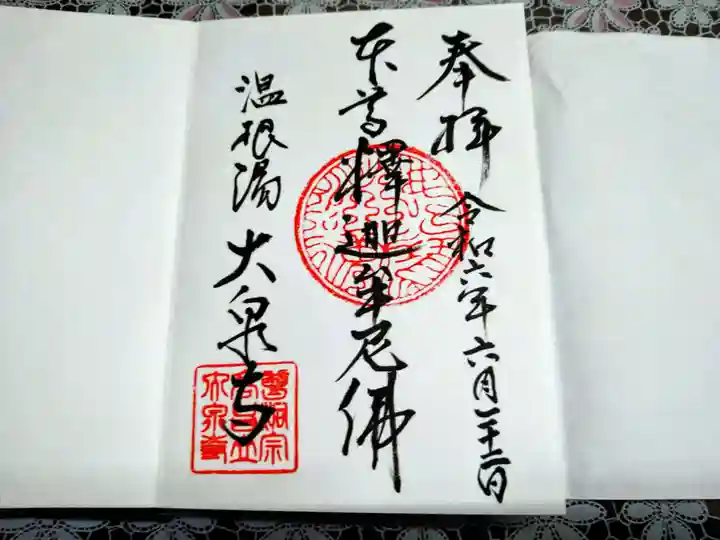 奉拝
令和六年六月二十二日
本尊釋迦牟尼佛
温根湯 大泉寺
曹洞宗
大泉寺